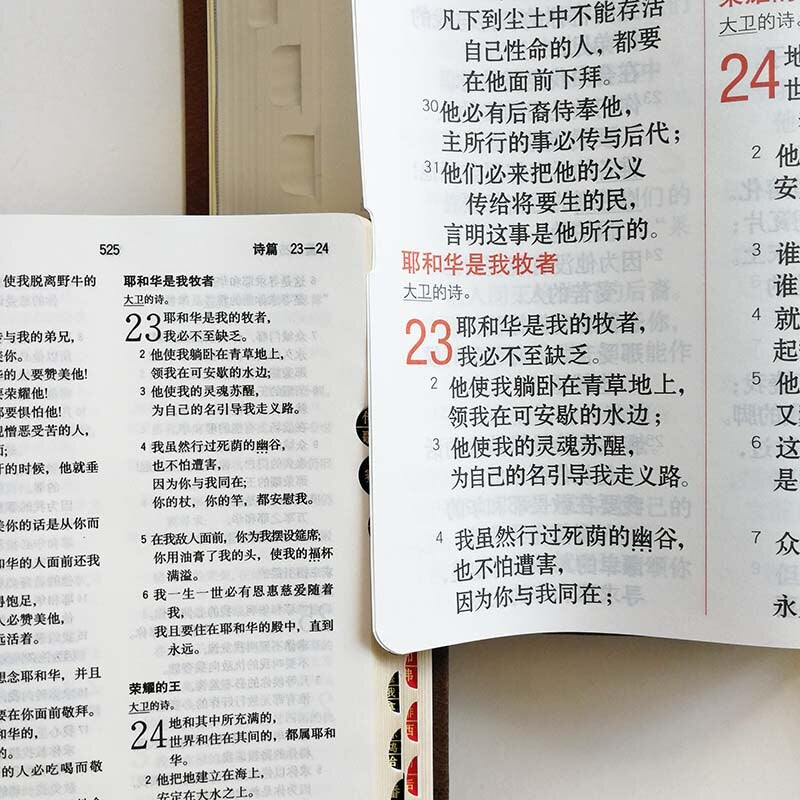 525
诗篇 23—24
使我脱离野牛的
与我的弟兄,
美你。
华的人要赞美他!
要荣耀他!
都要惧怕他!
视憎恶受苦的人,
的时候,他就垂
美你的话是从你而
和华的人面前还我
得饱足,
人必赞美他,
远活着。
想念耶和华,并且
要在你面前敬拜。
和华的,
的。
的人必吃喝而敬
耶和华是我牧者
大卫的诗。
23 耶和华是我的牧者,
我必不至缺乏。
2 他使我躺卧在青草地上,
领我在可安歇的水边;
3 他使我的灵魂苏醒,
为自己的名引导我走义路。
4 我虽然行过死荫的幽谷,
也不怕遭害,
因为你与我同在;
你的杖,你的竿,都安慰我。
5 在我敌人面前,你为我摆设筵席;
你用油膏了我的头,使我的福杯
满溢。
6 我一生一世必有恩惠慈爱随着
我,
我且要住在耶和华的殿中,直到
永远。
荣耀的王
大卫的诗。
24 地和其中所充满的,
世界和住在其间的,都属耶和
华。
2 他把地建立在海上,
安定在大水之上。
凡下到尘土中不能存活
自己性命的人,都要
在他面前下拜。
30 他必有后裔侍奉他,
主所行的事必传与后代;
31 他们必来把他的公义
传给将要生的民,
言明这事是他所行的。
耶和华是我牧者
大卫的诗。
23 耶和华是我的牧者,
我必不至缺乏。
2 他使我躺卧在青草地上,
领我在可安歇的水边;
3 他使我的灵魂苏醒,
为自己的名引导我走义路。
4 我虽然行过死荫的幽谷,
也不怕遭害,
因为你与我同在;
荣耀的王
大卫的诗。
24 地
世
2 他
安
3 谁
谁
4 就
起
5 他
又
6 这
是
7 众
永